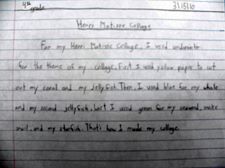 4th grade
3/15/10
Henri Matisse Collage
For my Henri Matisse Collage, I used underwater
for the theme of my collage. First I used yellow paper to cut
out my coral and my jellyfish. Then, I used blue for my whale
and my second jellyfish. Last I used green for my seaweed,
snail, and my starfish. That's how I made my collage.